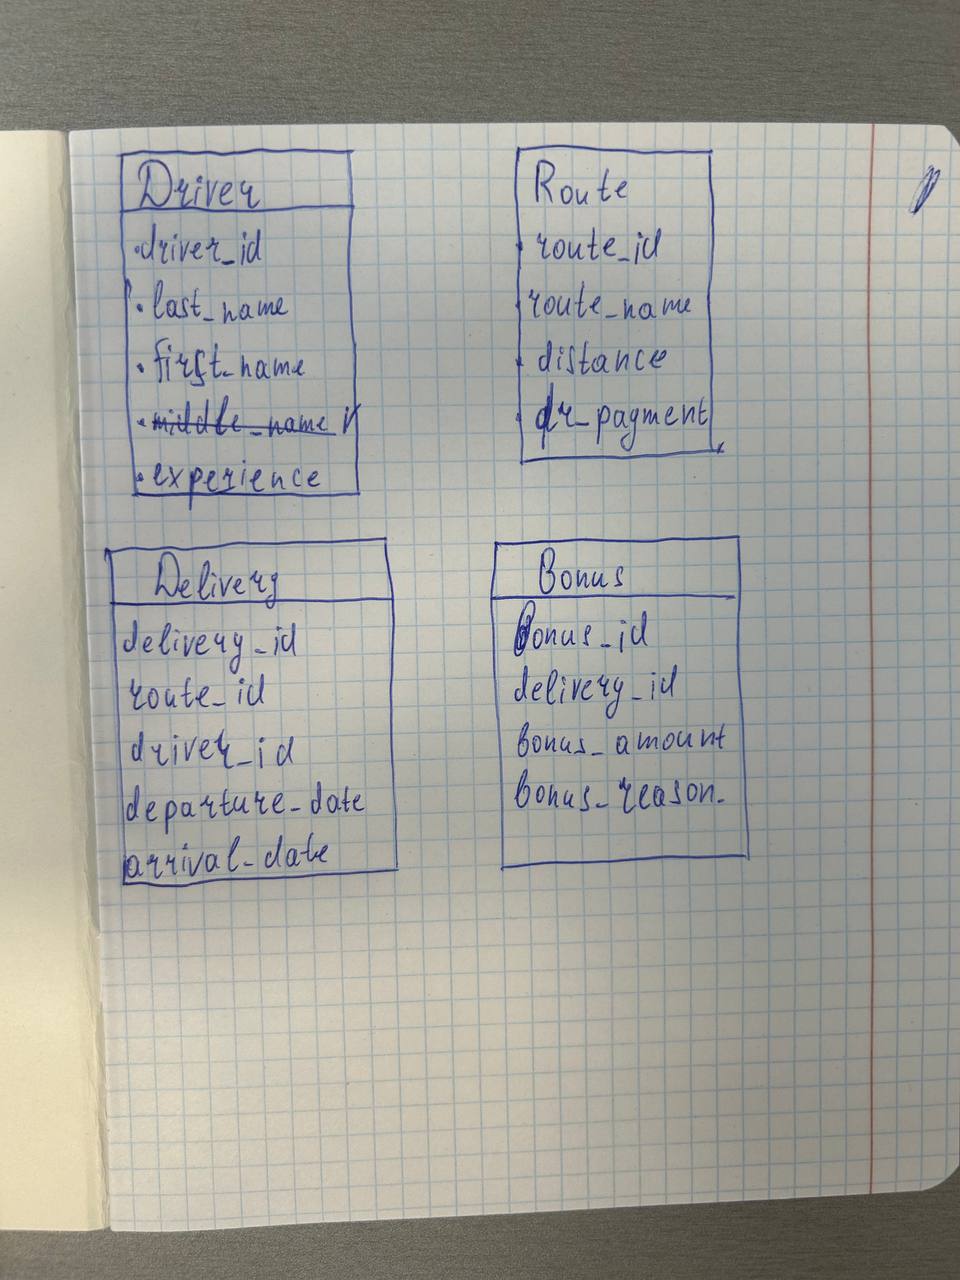 Driver
driver_id
last_name
first_name
middle_name
experience
Route
route_id
route_name
distance
dr_payment
Delivery
delivery_id
route_id
driver_id
departure_date
arrival_date
Bonus
bonus_id
delivery_id
bonus_amount
bonus_reason.